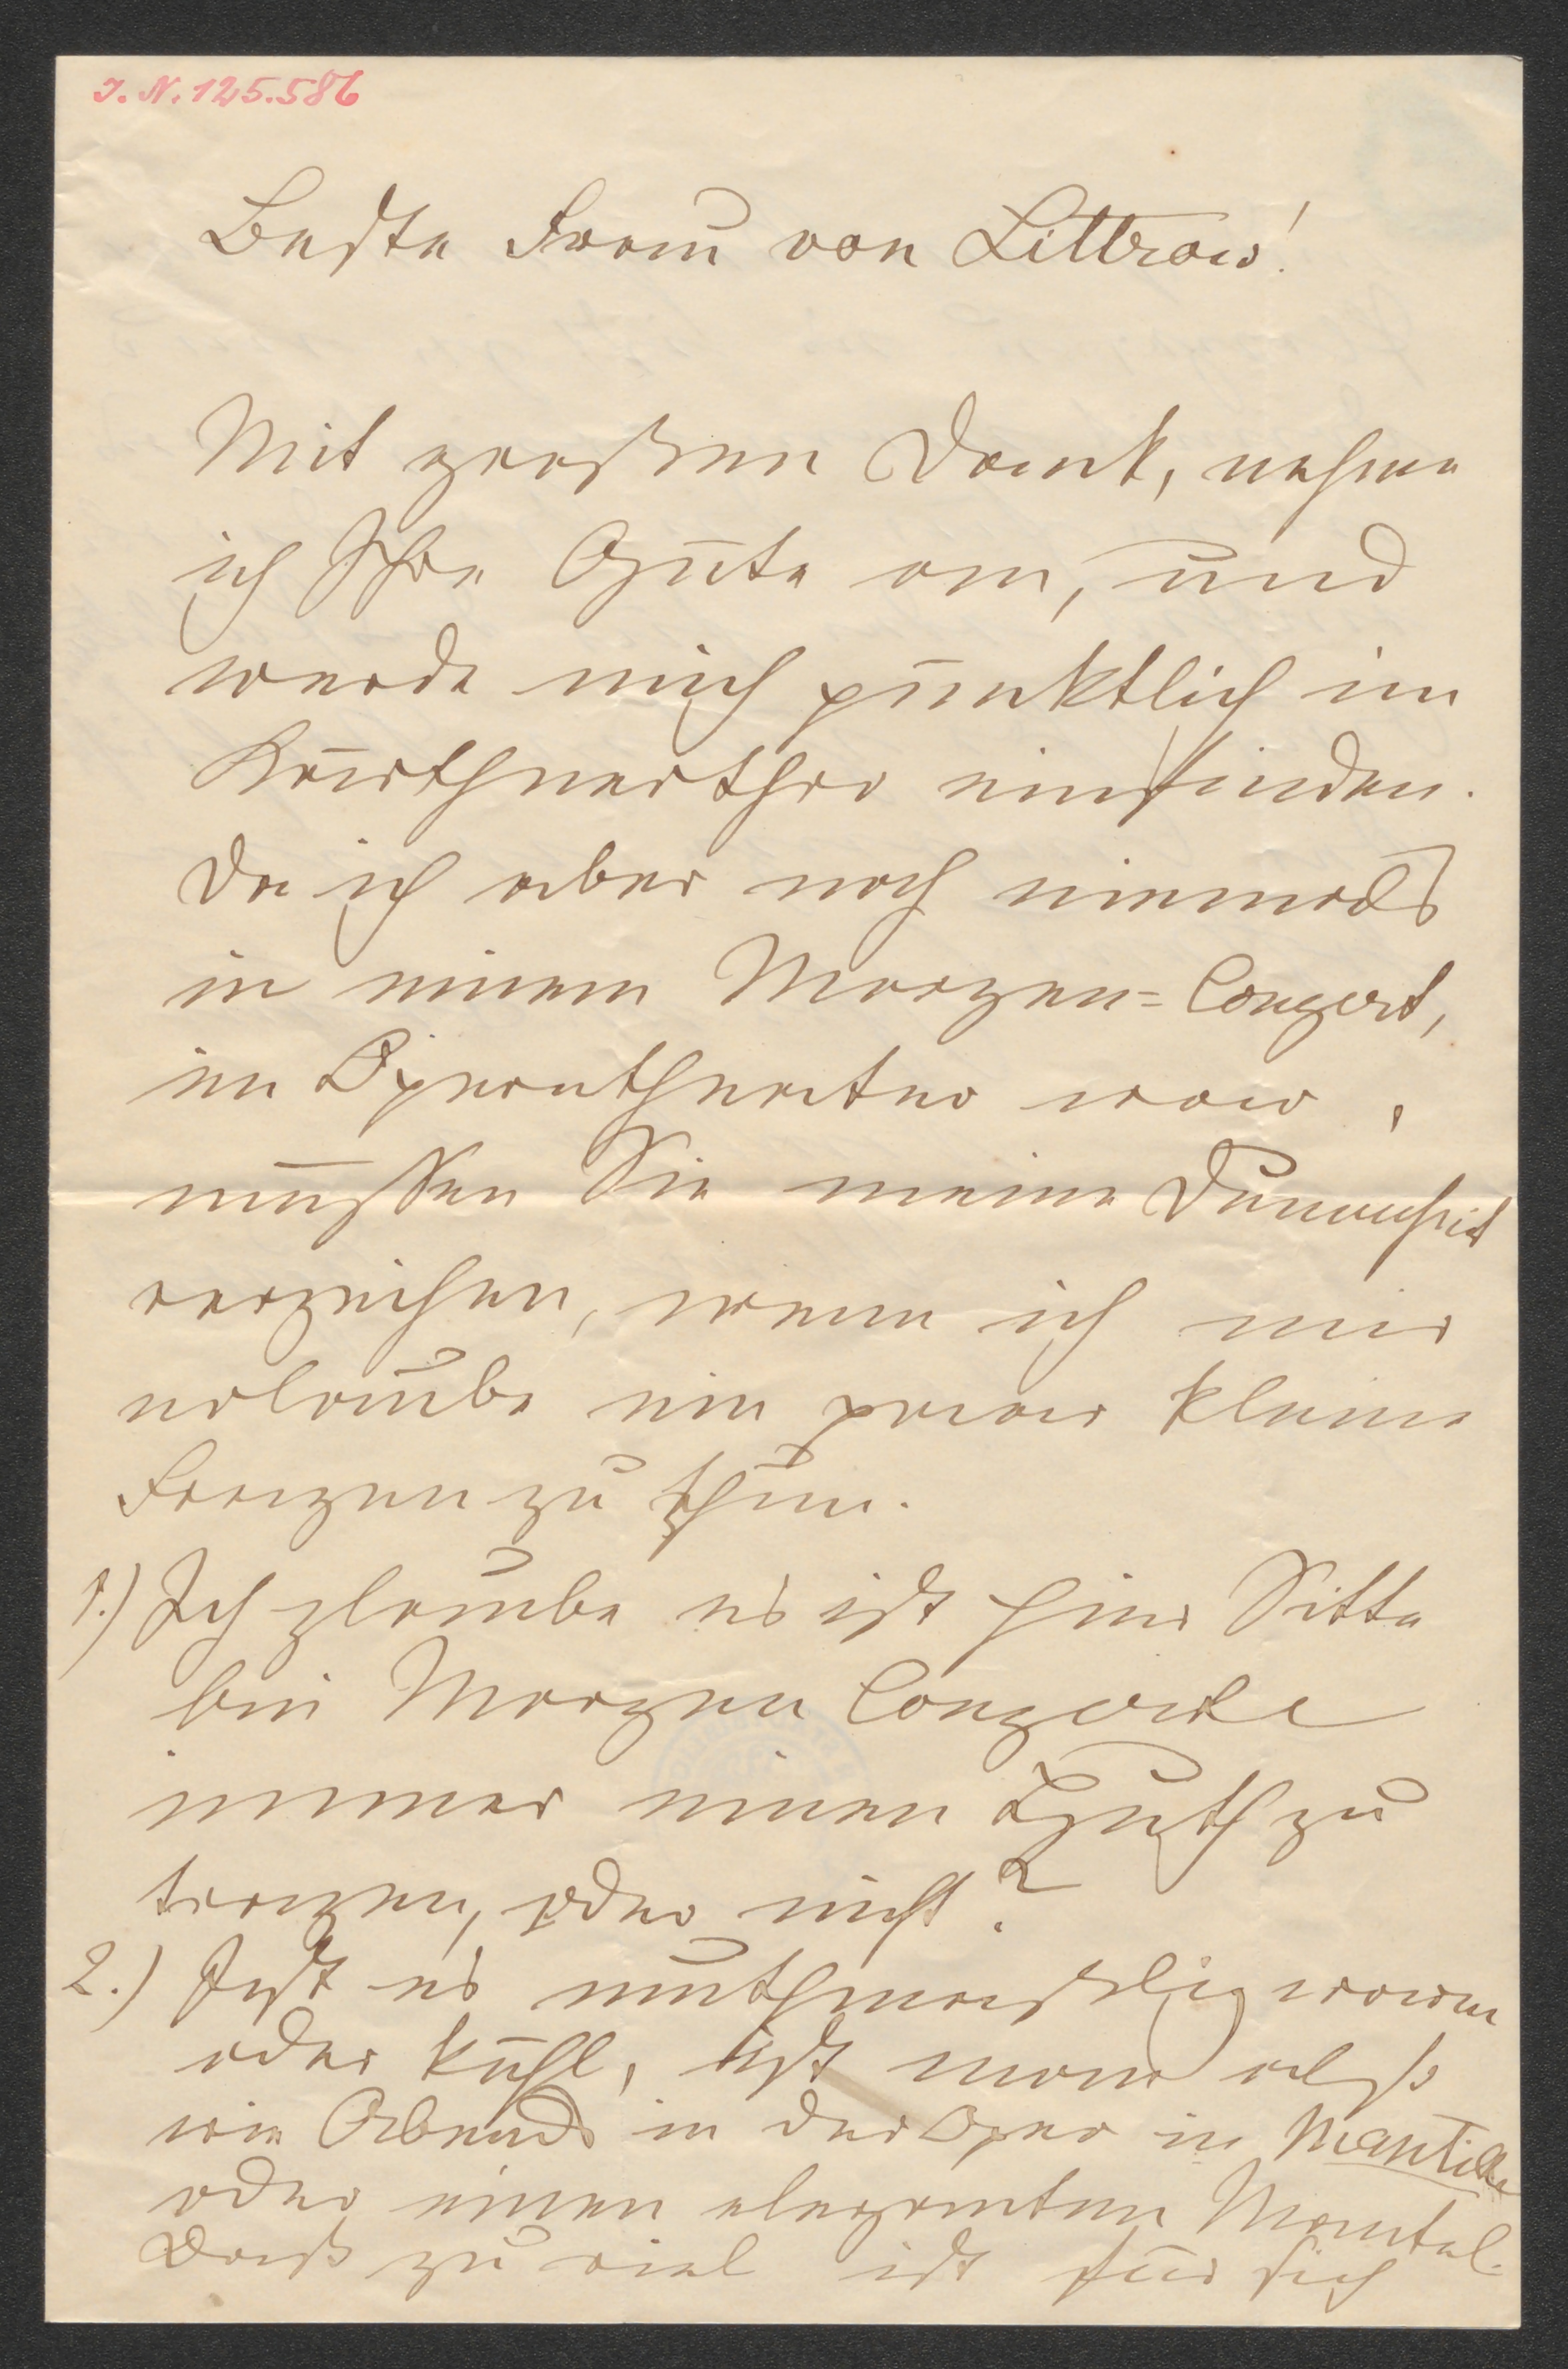 I. N. 125.586
Beste Frau von Littrow!
Mit großen Dank, nehme
ich Ihre Güte an, und
werde mich pünktlich im
Kärthnerthor einfinden.
Da ich aber noch niemals
in einem Morgen=Conzert,
im Operntheater war,
müssen Sie meine Dummheit
verzeihen, wenn ich mir
erlaube ein paar kleine
Fragen zu thun.
1.) Ich glaube es ist hier Sitte
bei Morgen Conzerte
immer einen Huth zu
tragen, oder nicht?
2.) Ist es muthmaßlig warm
oder kühl, ist man also
wie Abends in der Oper in Mantille
oder einen eleganten Mantel.
Daß zu viel ist für sich